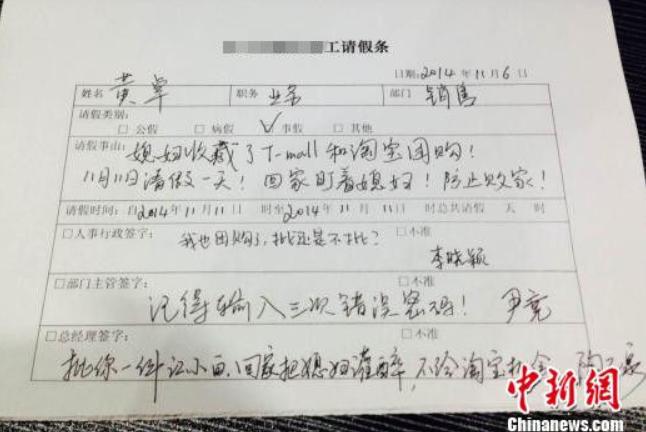 工请假条
日期:2014年11月6日
姓名 黄卓 职务 业务 部门 销售
请假类别:
□公假 □病假 ✓事假 □其他
请假事由: 媳妇收藏了T-mall和淘宝团购!
11月11日请假一天! 回家盯着媳妇! 防止败家!
请假时间: 自2014年11月11日 时至2014年11月11日 时总共请假 天 时
□人事行政签字: □不准
我也团购了,批还是不批?
李晓颖
□部门主管签字: □不准
记得输入三次错误密码! 尹亮
□总经理签字: □不准
批你一件江小白,回家把媳妇灌醉,不给淘宝机会 陶
中新网
Chinanews.com